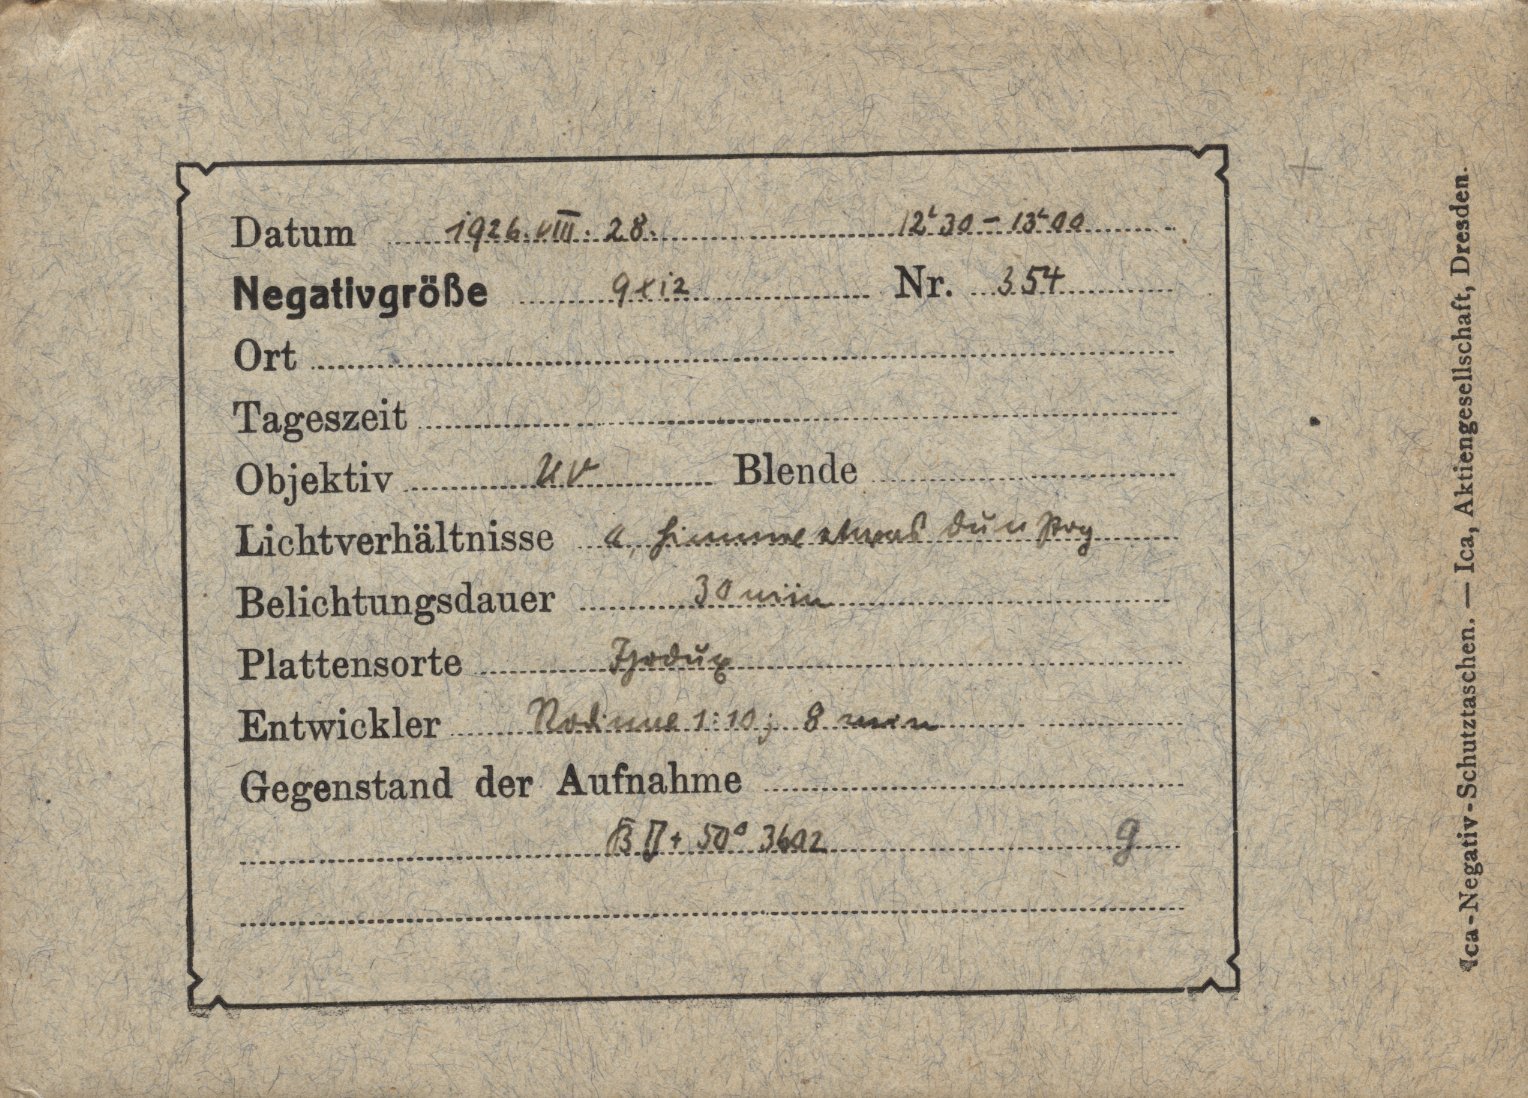 Datum 1926. VIII. 28. 12ʰ30 – 13ʰ00
Negativgröße 9x12 Nr. 354
Ort
Tageszeit
Objektiv UV Blende
Lichtverhältnisse etwas
Belichtungsdauer 30 min
Plattensorte
Entwickler 1:10; 8 min
Gegenstand der Aufnahme
B II + 50° 3602 g
Ica-Negativ-Schutztaschen. — Ica, Aktiengesellschaft, Dresden.